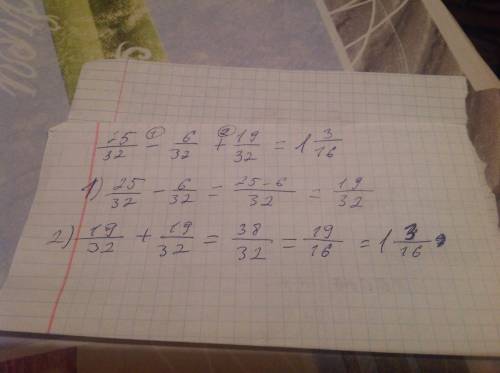 25/32 -① 6/32 +② 19/32 = 1 3/16
1) 25/32 - 6/32 = 25-6/32 = 19/32
2) 19/32 + 19/32 = 38/32 = 19/16 = 1 3/16.